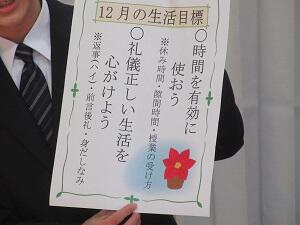 12月の生活目標
〇時間を有効に
使おう
※休み時間・隙間時間・授業の受け方
〇礼儀正しい生活を
心がけよう
※返事(ハイ)・前言後礼・身だしなみ